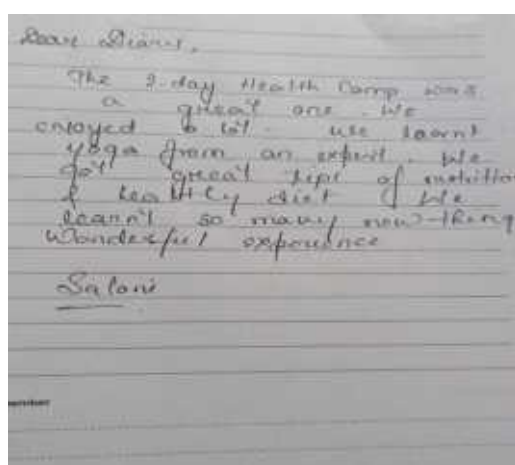 Dear Diary,
The 2-day Health Camp was
a great one. We
enjoyed a lot. We learnt
yoga from an expert. We
got great tips of nutritio
& healthy diet. We
learn't so many new-thing
Wonderful experience
Saloni